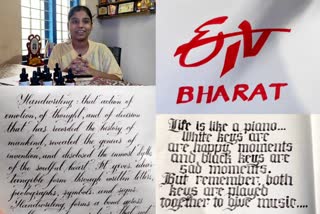 ETV
BHARAT
Handwriting that action of
emotion, of thought, and of decision
that has recorded the history of
mankind, revealed the genius of
invention, and disclosed the inmost
of the soulful heart. It gives
tangible form through written letters,
pictographs, symbols, and signs.
Handwriting forms a bond across
Life is like a piano...
White keys are
are happy moments
and black keys are
sad moments.
But remember, both
keys are played
together to give music....